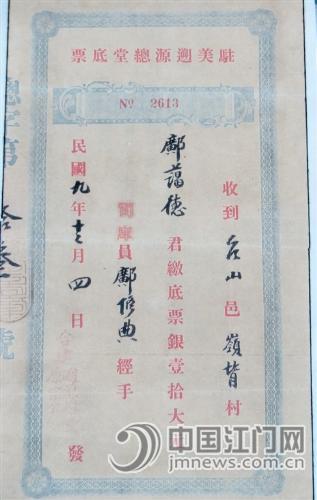 駐美遡源總堂底票
No 2613
收到台山邑嶺背村
鄺藹德君繳底票銀壹拾大
司庫員鄺修典經手
民國九年十二月四日發
總字第
號
中国江门网
jmnews.com.cn